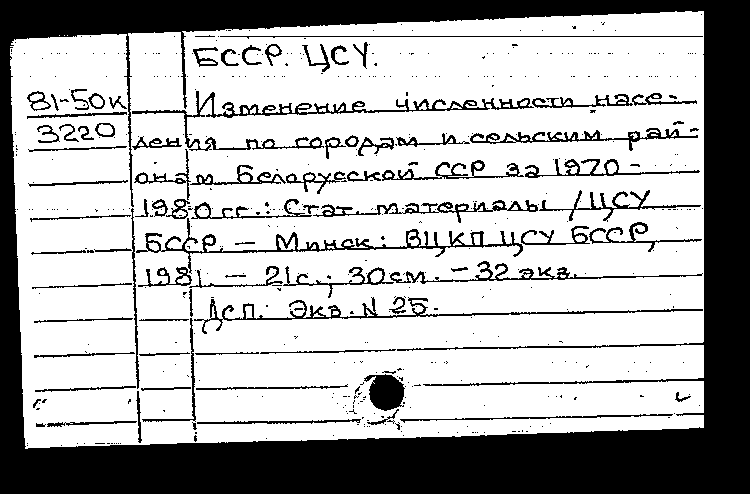 БССР. ЦСУ.
81-50к
3220
Изменение численности насе-
ления по городам и сельским рай-
онам Белорусской ССР за 1970-
1980 гг.: Стат. материалы / ЦСУ
БССР. – Минск: ВЦКП ЦСУ БССР,
1981. – 21с.; 30см. – 32 экз.
Дсп. Экз. N 25.